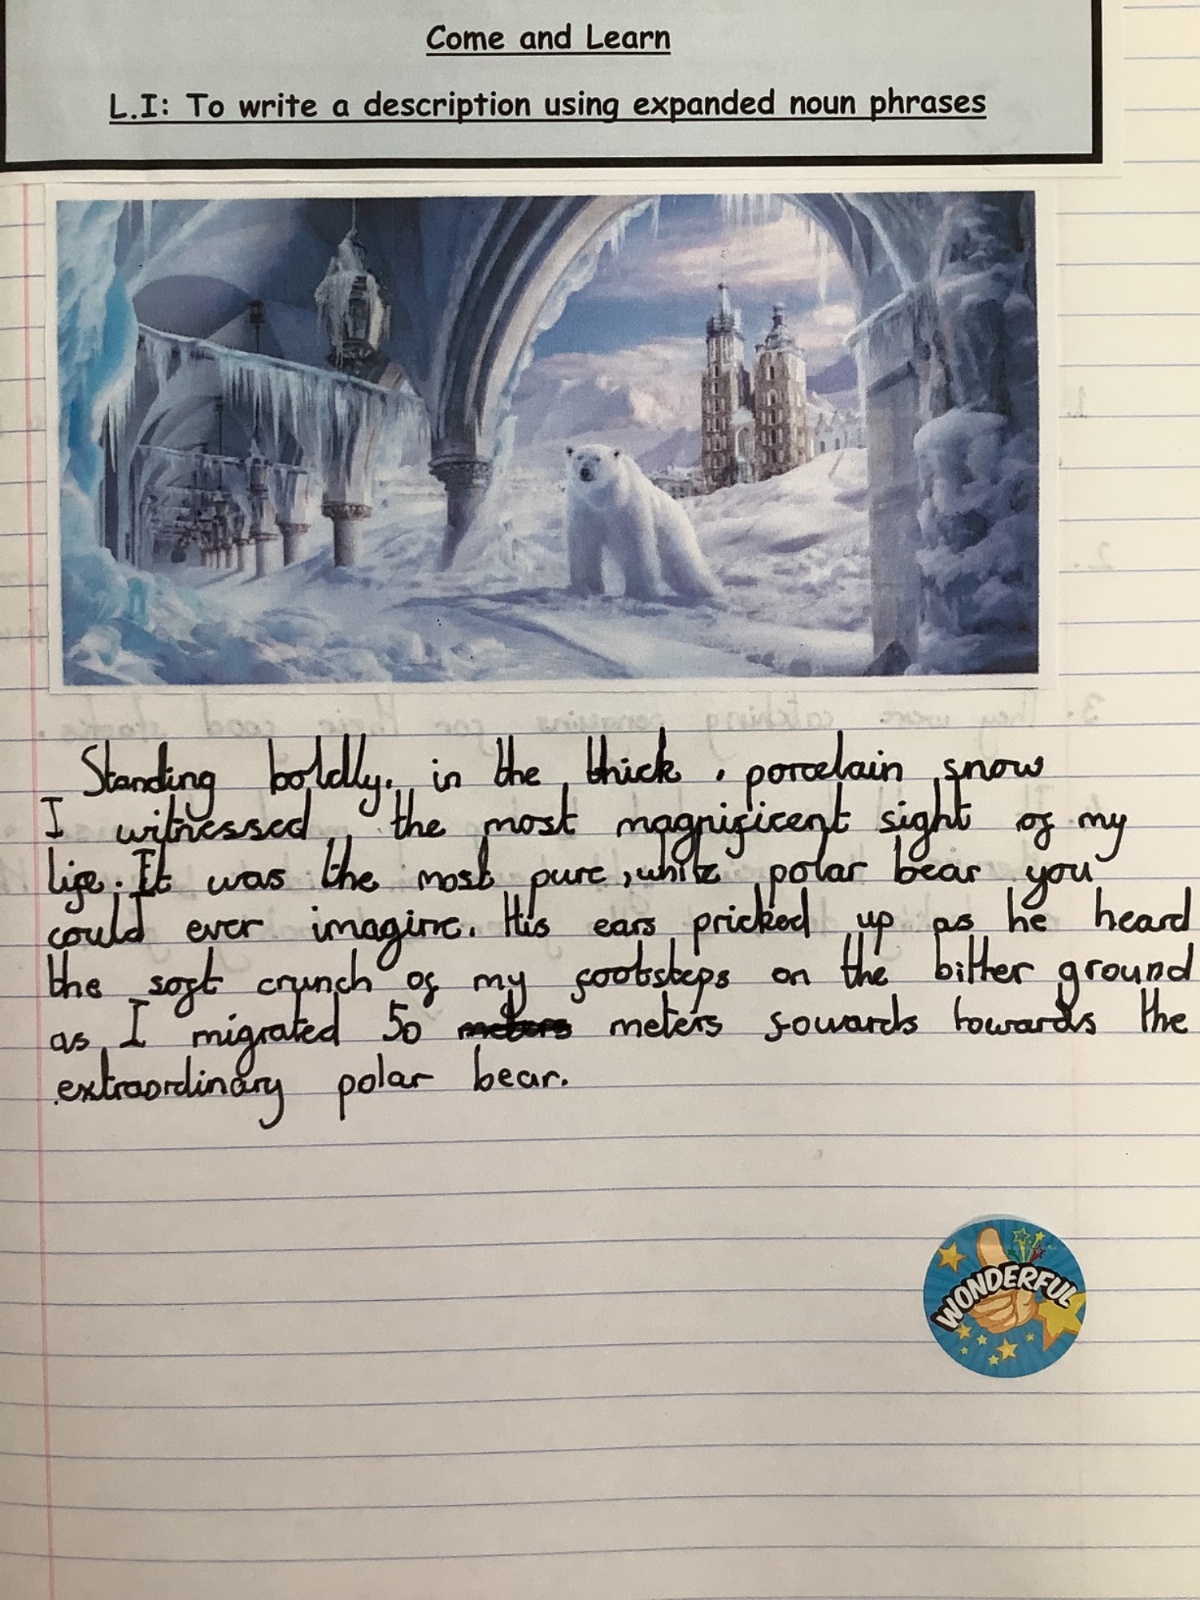 Come and Learn
L.I: To write a description using expanded noun phrases
Standing boldly, in the thick , porcelain snow
I witnessed , the most magnificent sight of my
life. It was the most pure, white polar bear you
could ever imagine. His ears pricked up as he heard
the soft crunch of my footsteps on the bitter ground
as I migrated 50 meters meters fowards towards the
extraordinary polar bear.
WONDERFUL